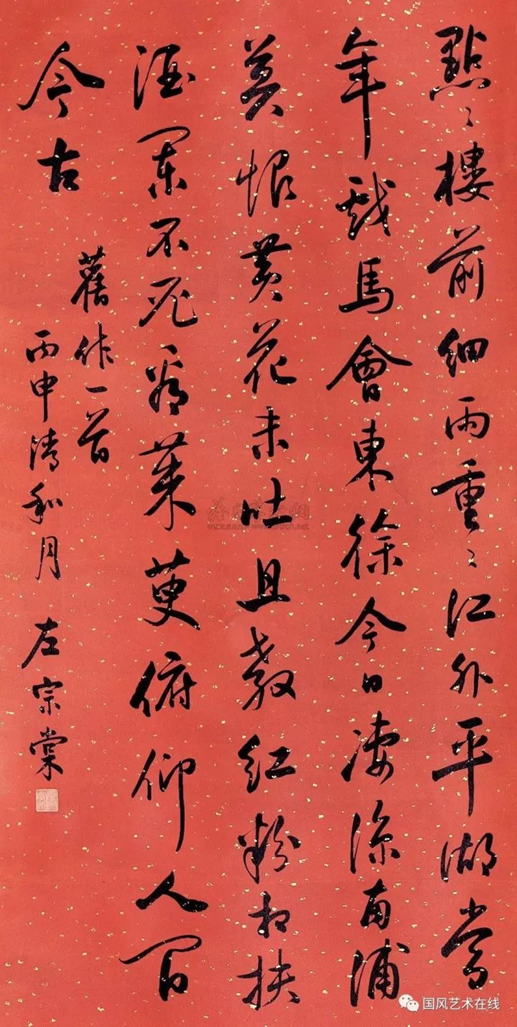 點〻樓前細雨重〻江外平湖當
年戲馬會東徐今日凄涼南浦
莫恨黃花未吐且教紅粉相扶
酒闌不看茱萸俯仰人間
今古
舊作一首
丙申清和月
左宗棠
国风艺术在线